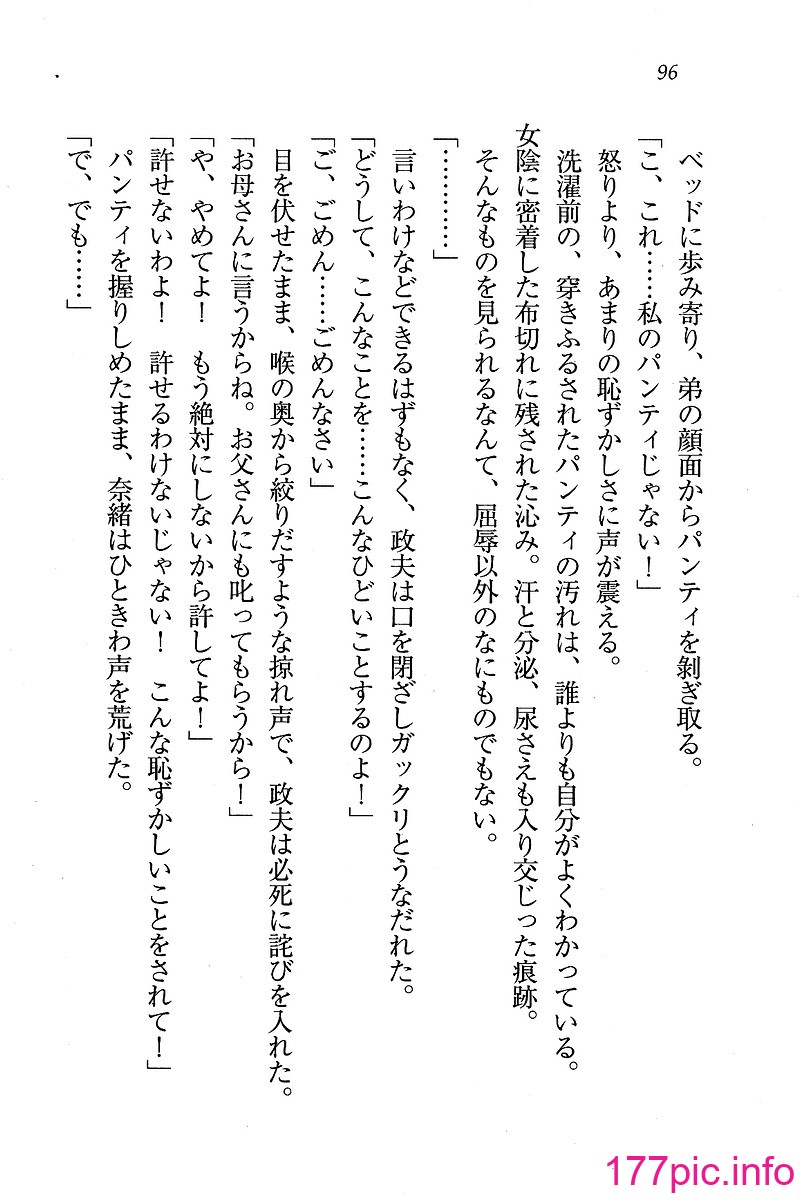 96
ベッドに歩み寄り、弟の顔面からパンティを剝ぎ取る。
「こ、これ……私のパンティじゃない！」
怒りより、あまりの恥ずかしさに声が震える。
洗濯前の、穿きふるされたパンティの汚れは、誰よりも自分がよくわかっている。
女陰に密着した布切れに残された沁み。汗と分泌、尿さえも入り交じった痕跡。
そんなものを見られるなんて、屈辱以外のなにものでもない。
「…………」
言いわけなどできるはずもなく、政夫は口を閉ざしガックリとうなだれた。
「どうして、こんなことを……こんなひどいことするのよ！」
「ご、ごめん……ごめんなさい」
目を伏せたまま、喉の奥から絞りだすような掠れ声で、政夫は必死に詫びを入れた。
「お母さんに言うからね。お父さんにも叱ってもらうから！」
「や、やめてよ！　もう絶対にしないから許してよ！」
「許せないわよ！　許せるわけないじゃない！　こんな恥ずかしいことをされて！」
パンティを握りしめたまま、奈緒はひときわ声を荒げた。
「で、でも……」
177pic.info